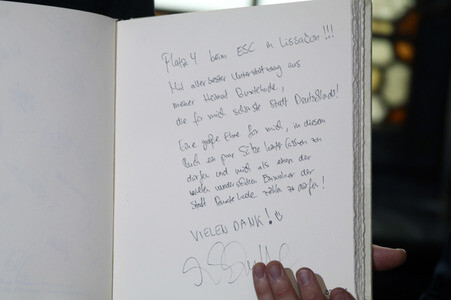 Platz 4 beim ESC in Lissabon !!!
Mit allerbester Unterstützung aus
meiner Heimat Buxtehude,
die für mich schönste Stadt Deutschlands!
Eine große Ehre für mich, in diesem
Buch ein paar Sätze hinterlassen zu
dürfen und mich als einen der
vielen wundervollen Bewohner der
Stadt Buxtehude zählen zu dürfen!
VIELEN DANK!